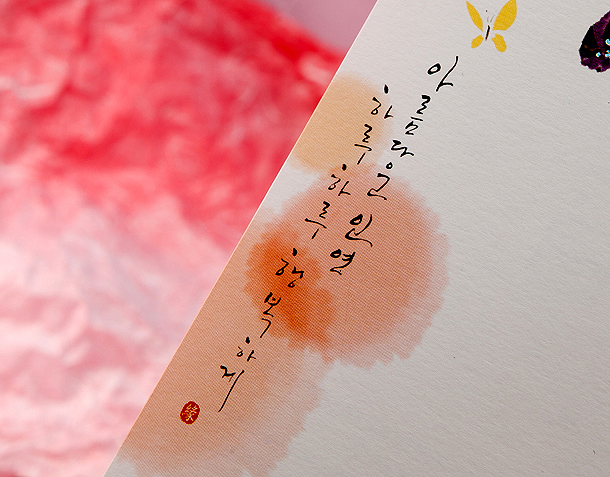 아름다운 인연
하루하루 행복하게